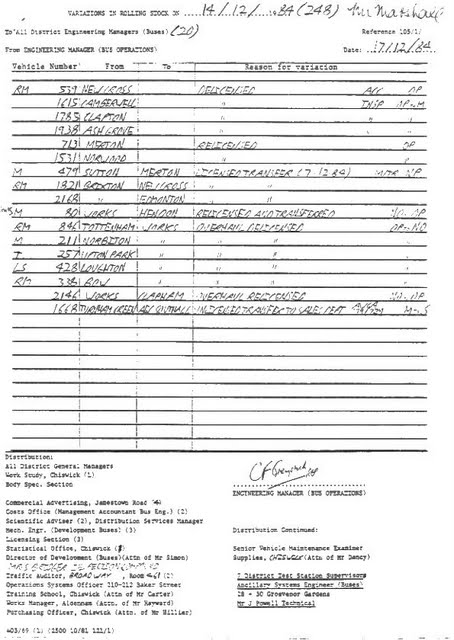 VARIATIONS IN ROLLING STOCK ON 14/12/84 (248) Mr Marshall
To All District Engineering Managers (Buses) (20) Reference 103/1/
From ENGINEERING MANAGER (BUS OPERATIONS) Date: 17/12/84
Vehicle Number From To Reason for variation
RM 539 NEW CROSS DELICENSED OP
1615 CAMBERWELL " INSP OP-M
1785 CLAPTON " "
1938 ASH GROVE " "
713 MERTON RELICENSED OP
1531 NORWOOD " "
M 479 SUTTON MERTON LICENSED TRANSFER (7.12.84)
RM 1821 BRIXTON NEW CROSS " "
2168 " EDMONTON " "
M 80 WORKS HENDON RELICENSED AND TRANSFERRED
RM 846 TOTTENHAM WORKS OVERHAUL DELICENSED OP-NO
M 211 NORBITON " " "
T 257 UPTON PARK " " "
LS 428 LOUGHTON " " "
RM 334 BOW " " "
2146 WORKS CLAPHAM OVERHAUL RELICENSED
1668 TURNHAM GREEN UNLICENSED TRANSFER TO SALES DEPT
Distribution:
All District General Managers
Work Study, Chiswick (1)
Body Spec. Section
ENGINEERING MANAGER (BUS OPERATIONS)
Commercial Advertising, Jamestown Road
Costs Office (Management Accountant Bus Eng.) (2)
Scientific Adviser (2), Distribution Services Manager
Mech. Engr. (Development Buses) (3)
Licensing Section (3)
Statistical Office, Chiswick
Director of Development (Buses)(Attn of Mr Simon)
Traffic Auditor, BROADWAY, Room (2)
Operations Systems Officer 210-212 Baker Street
Training School, Chiswick (Attn of Mr Carter)
Works Manager, Aldenham (Attn. of Mr Hayward)
Purchasing Officer, Chiswick (Attn. of Mr Hillier)
Distribution Continued:
Senior Vehicle Maintenance Examiner
Supplies, CHISWICK (Attn of Mr Dancy)
7 District Test Station Supervisors
Ancillary Systems Engineer (Buses)
28 - 30 Grosvenor Gardens
Mr J Powell Technical
403/69 (1) (2500 10/81 121/1)